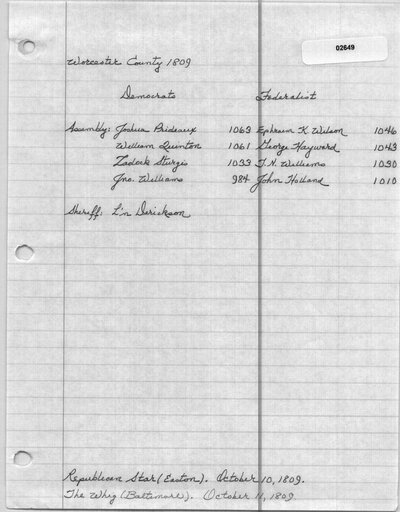 02649
Worcester County 1809
Democrats Federalist
Assembly: Joshua Prideaux 1063 Ephraim K. Wilson 1046
William Quinton 1061 George Hayward 1043
Zadock Sturgis 1033 T.N. Williams 1030
Jno. Williams 984 John Holland 1010
Sheriff: L'n Derickson
Republican Star (Easton). October 10, 1809.
The Whig (Baltimore). October 11, 1809